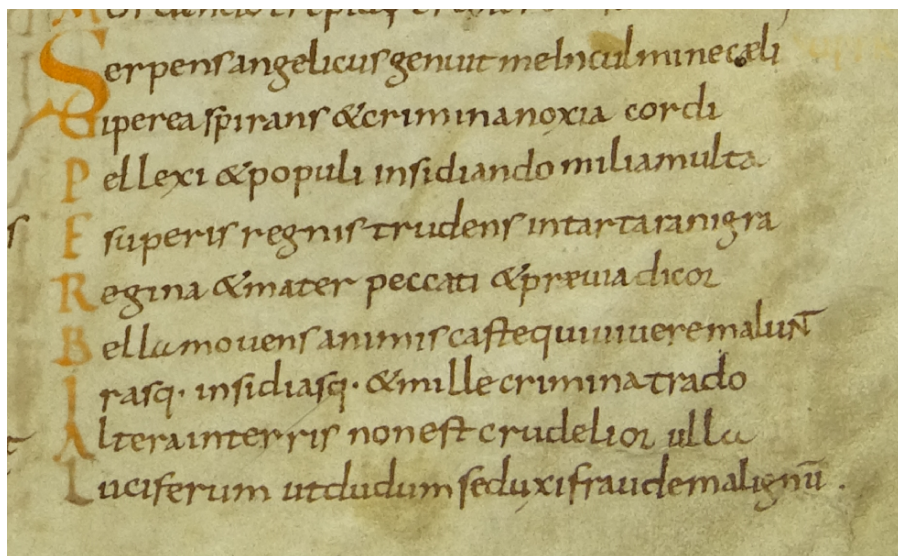 Serpens angelicus genuit me In culmine cæli
Uiperea sp̄irans & crimina noxia cordi
Pellexi & populi insidiando milia multa
E superis regnis trudens in tartara nigra
Regina & mater peccati & prævia dicor
Bella movens animis caste qui vivere malun̄t
Irasq· insidiasq· & mille crimina trado
Altera in terris non est crudelior ulla
Luciferum ut dudum seduxi fraude malignū .